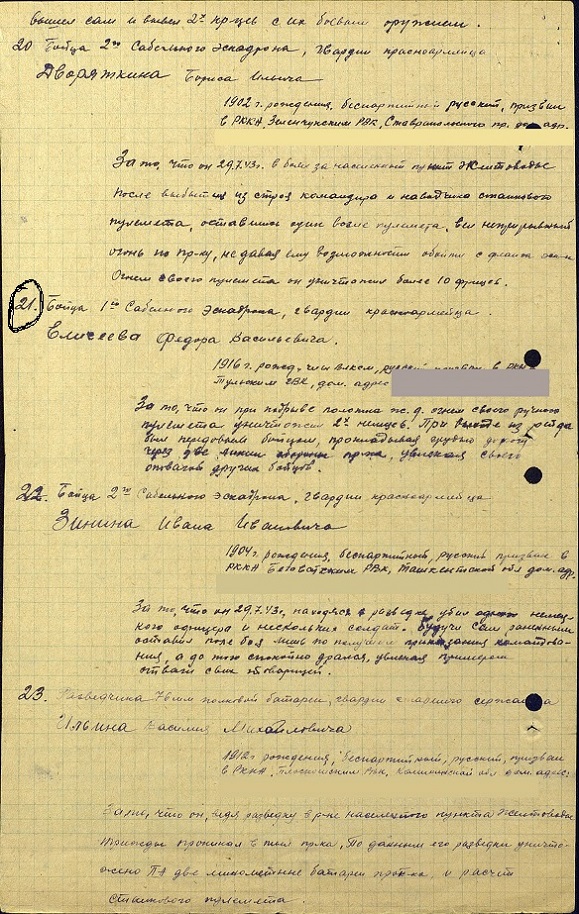 вышел сам и вывел 2х кр-цев с их боевым оружием.
20 Бойца 2го Сабельного Эскадрона, гвардии красноармейца
Дворяжкина Бориса Ильича
1902 г. рождения, беспартийный русский, призван
в РККА, Зеленчукским РВК, Ставропольского
За то, что он 29.7.43г. в боях за населенный пункт Жиптоводье
После выбытия из строя командира и наводчика станкового
пулемета, оставшись один возле пулемета, вел непрерывный
огонь по пр-ку, не давая ему возможности обойти с фланга
Огнем своего пулемета он уничтожил более 10 фрицев.
21. Бойца 1го Сабельного Эскадрона, гвардии красноармейца
Елисеева Федора Васильевича.
1916 г. рожд, член ВЛКСМ, русский призван в РККА
Тульским ГВК, дом. адрес
За то, что он при подрыве полотна ж.д. огнем своего ручного
пулемета уничтожил 2х немцев. При выходе из рейда
был передовым бойцом, прокладывая грудью дорогу
через две линии обороны пр-ка, увлекая своей
отвагой других бойцов.
22. Бойца 2го Сабельного Эскадрона, гвардии красноармейца
Зинина Ивана Ивановича
1904 г. рождения, беспартийный, русский призван в
РККА РВК, Ташкентской обл дом. адр.
За то, что он 29.7.43г., находясь в разведке убил одного немец-
кого офицера и нескольких солдат. Будучи сам раненным
оставил поле боя лишь по получении приказания командова-
ния, а до того спокойно дрался, увлекая примером
отваги своих товарищей.
23. Разведчика 76мм полковой батареи, гвардии старшего сержанта
Ильина Василия Михайловича
1912 г рождения, беспартийный, русский, призван
в РККА, РВК, Калининской обл дом. адрес:
За то, что он, ведя разведку в р-не населенного пункта
Трижды проникал в тыл пр-ка, По данным его разведки уничто-
жено две минометные батареи прот-ка, и расчет
станкового пулемета.